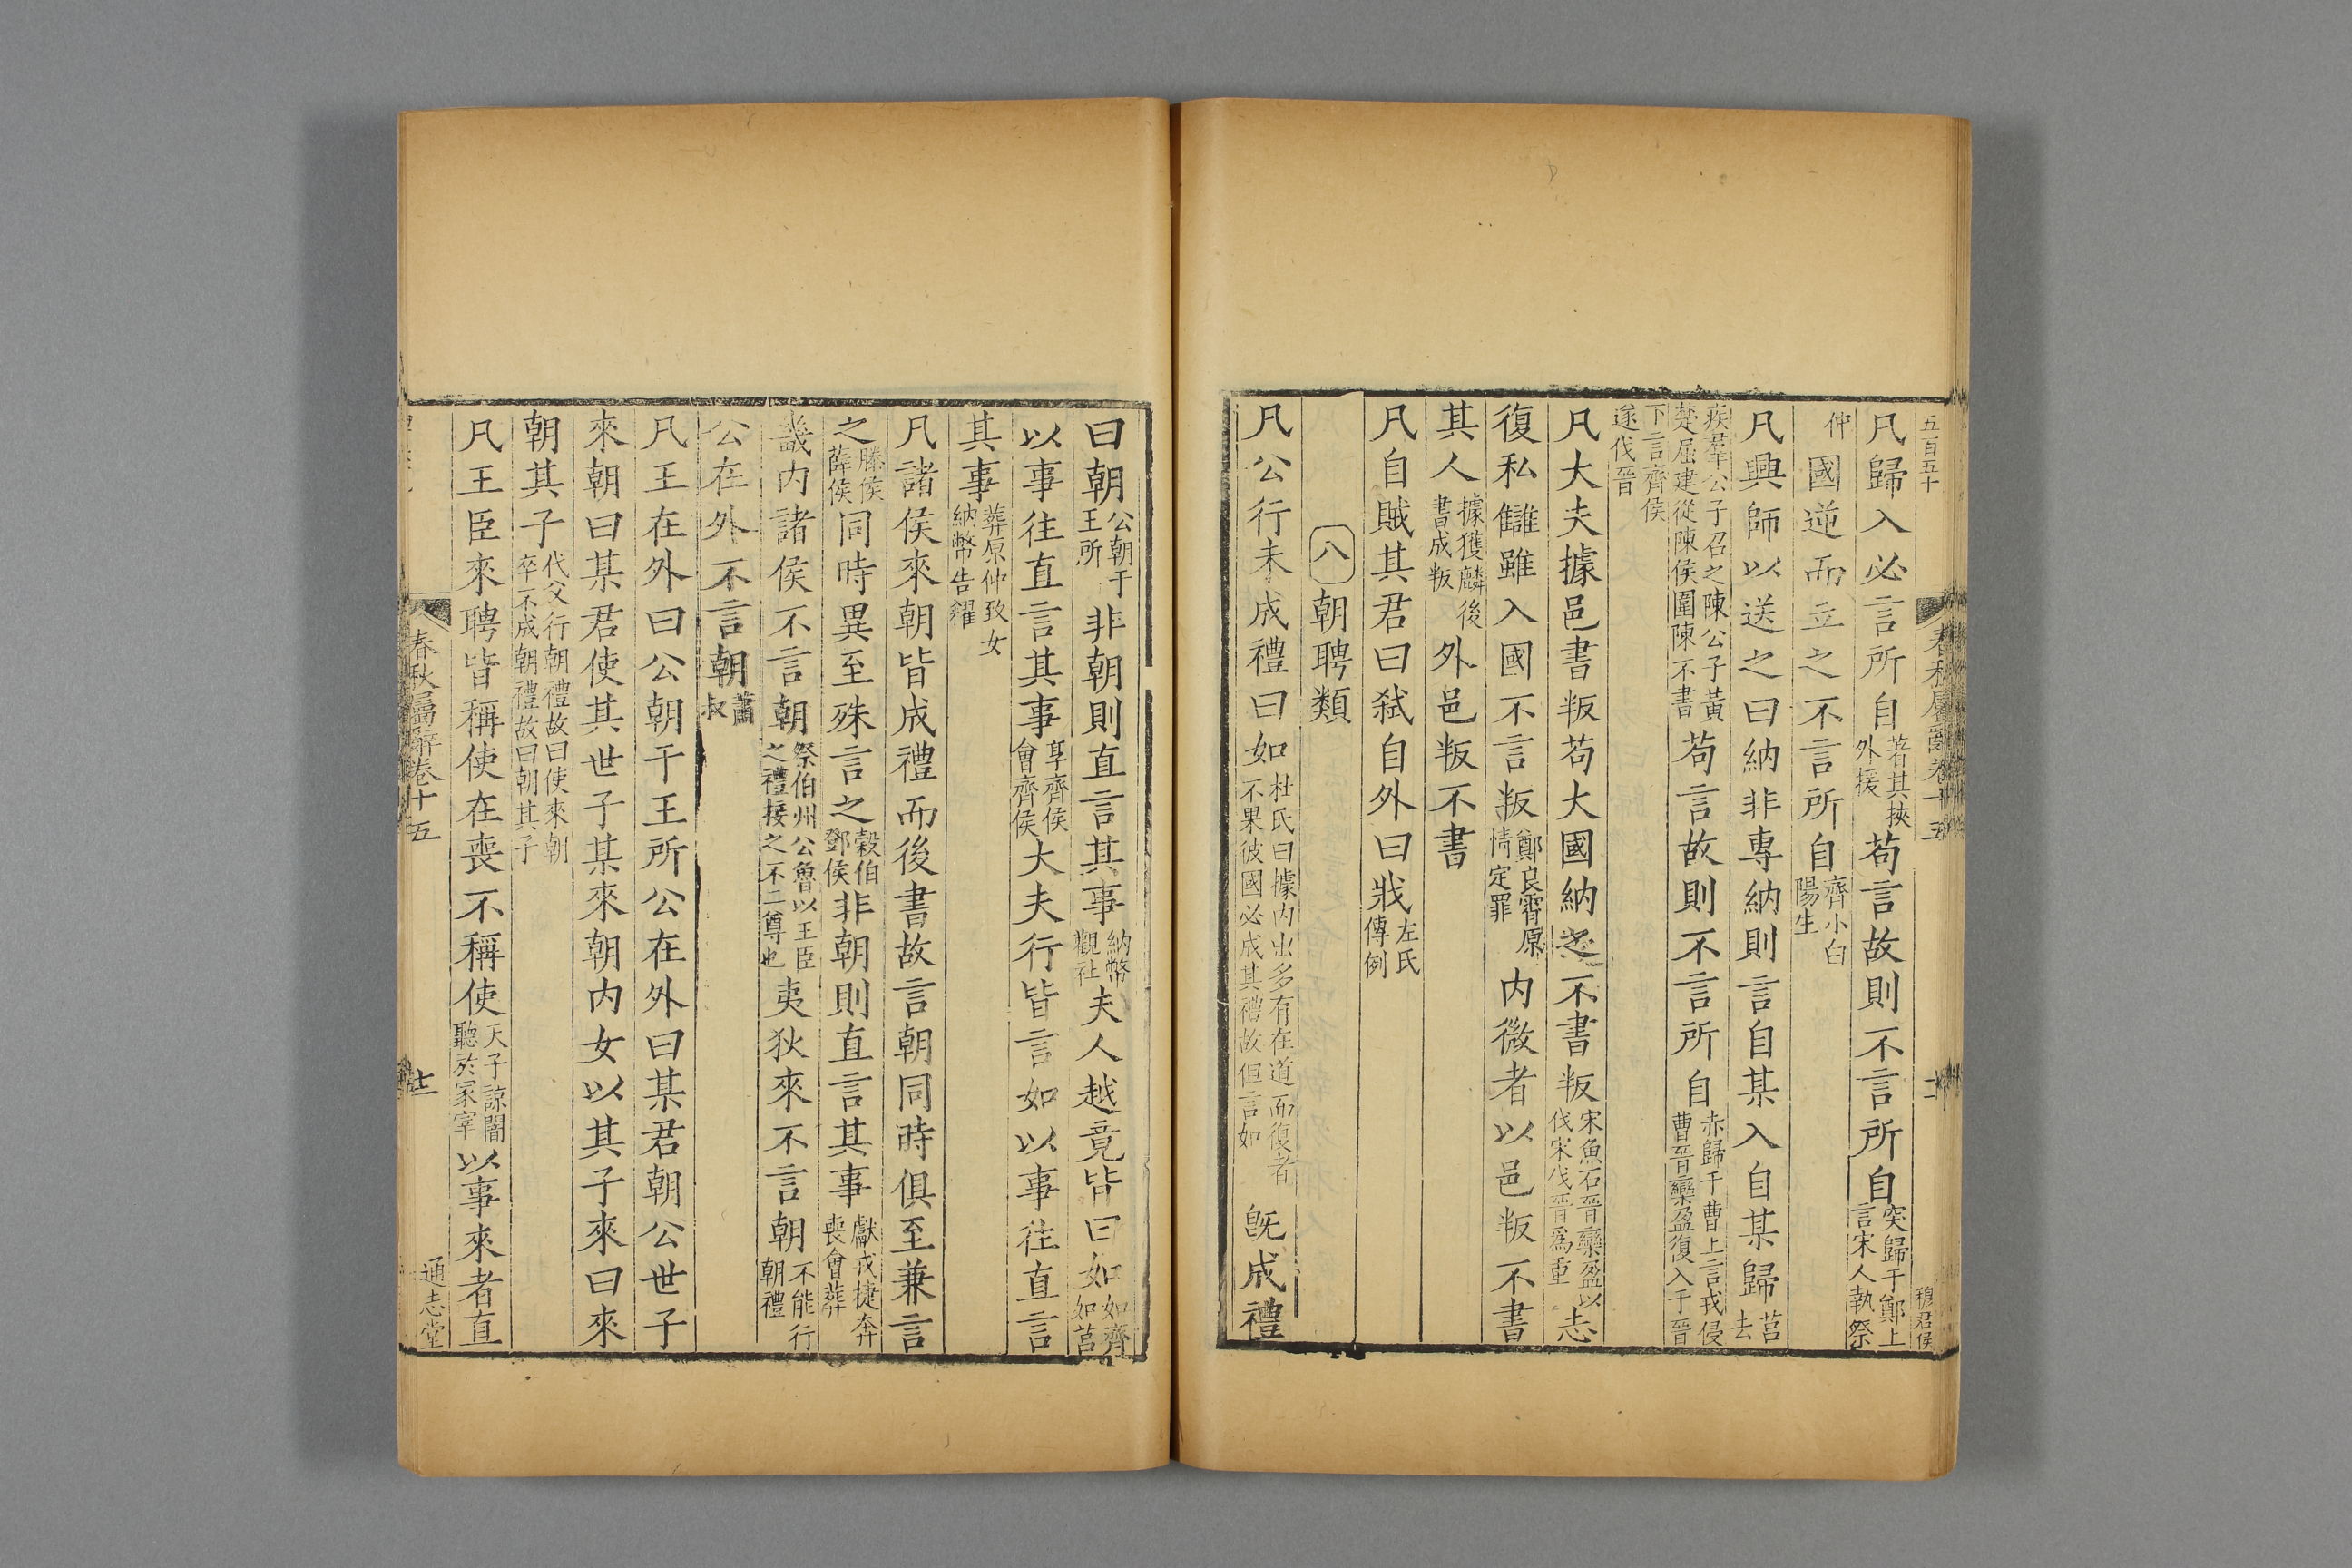 五百五十
春秋屬辭卷十五
十二
穆君侯
凡歸入必言所自著其挾外援苟言故則不言所自突歸于鄭上言宋人執祭
仲國逆而立之不言所自齊小白陽生
凡興師以送之曰納非專納則言自某入自某歸莒去
疾羣公子召之陳公子黃楚屈建從陳侯圍陳不書苟言故則不言所自赤歸于曹上言戎侵曹晉欒盈復入于晉
下言齊侯遂伐晉
凡大夫據邑書叛苟大國納之不書叛宋魚石晉欒盈以伐宋伐晉為重志
復私讎雖入國不言叛鄭良霄原情定罪内微者以邑叛不書
其人據獲麟後書成叛外邑叛不書
凡自賊其君曰弒自外曰戕左氏傳例
八朝聘類
凡公行未成禮曰如杜氏曰據内出多有在道而復者不果彼國必成其禮故但言如旣成禮
曰朝公朝于王所非朝則直言其事納幣觀社夫人越竟皆曰如如齊如莒
以事往直言其事享齊侯會齊侯大夫行皆言如以事往直言
其事葬原仲致女納幣告糴
凡諸侯來朝皆成禮而後書故言朝同時俱至兼言
之滕侯薛侯同時異至殊言之穀伯鄧侯非朝則直言其事獻戎捷奔喪會葬
畿内諸侯不言朝祭伯州公魯以王臣之禮接之不二尊也夷狄來不言朝不能行朝禮
公在外不言朝蕭叔
凡王在外曰公朝于王所公在外曰某君朝公世子
來朝曰某君使其世子某來朝内女以其子來曰來
朝其子代父行朝禮故曰使來朝卒不成朝禮故曰朝其子
凡王臣來聘皆稱使在喪不稱使天子諒闇聽於冢宰以事來者直
春秋屬辭卷十五
十二
通志堂